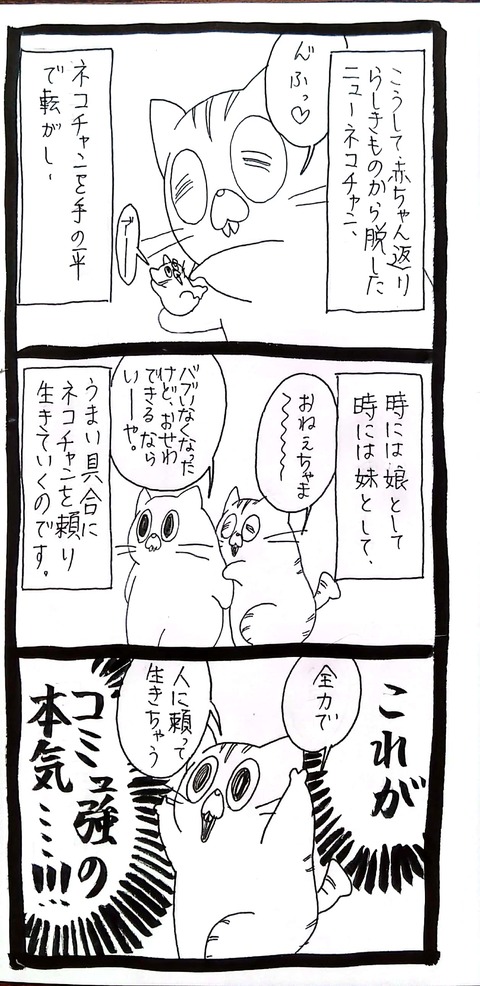 こうして、赤ちゃん返り
らしきものから脱した
ニューネコチャン、
んふっ♡
ブー
ネコチャンを手の平
で転がし、
時には娘として
時には妹として、
おねえちゃま
〜〜〜〜
バブいなくなった
けど、おせわ
できるなら
いーや。
うまい具合に
ネコチャンを頼り
生きていくのです。
これが
全力で
人に頼って
生きちゃう
コミュ強の
本気……!!!